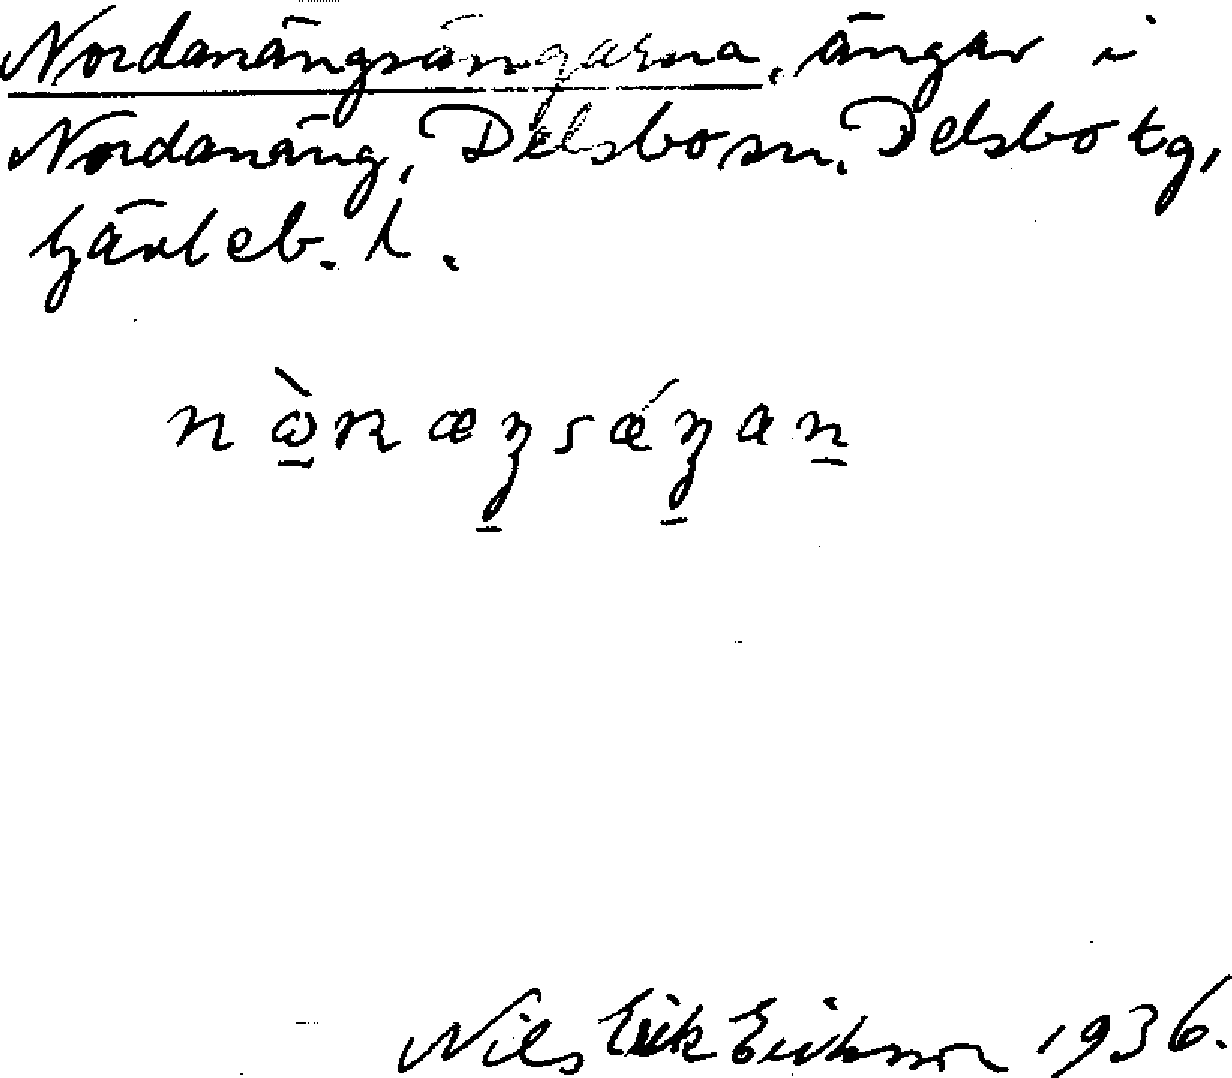 Nordanängsängarna, ängar i
Nordanäng, Delsbo sn. Delsbo tg,
Gävleb. l.
Nils Erik Eriksson 1936.